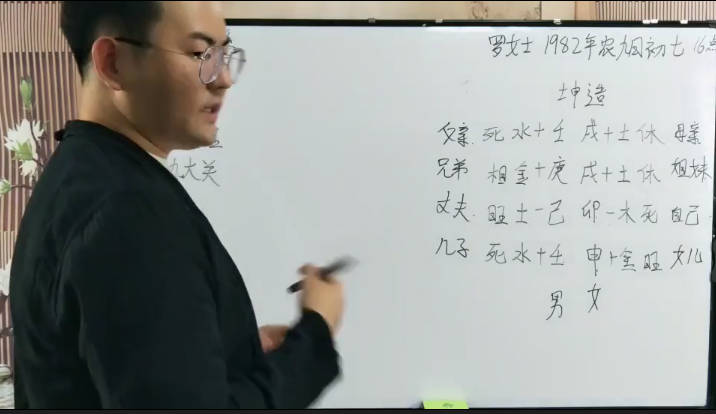 罗女士 1982年农九月初七 16点
坤造
父亲 死水+壬 戌+土休 母亲
九大关
兄弟 相金+庚 戌+土休 姐妹
丈夫 旺土-己 卯-木死 自己
儿子 死水+壬 申+金旺 女儿
男 女